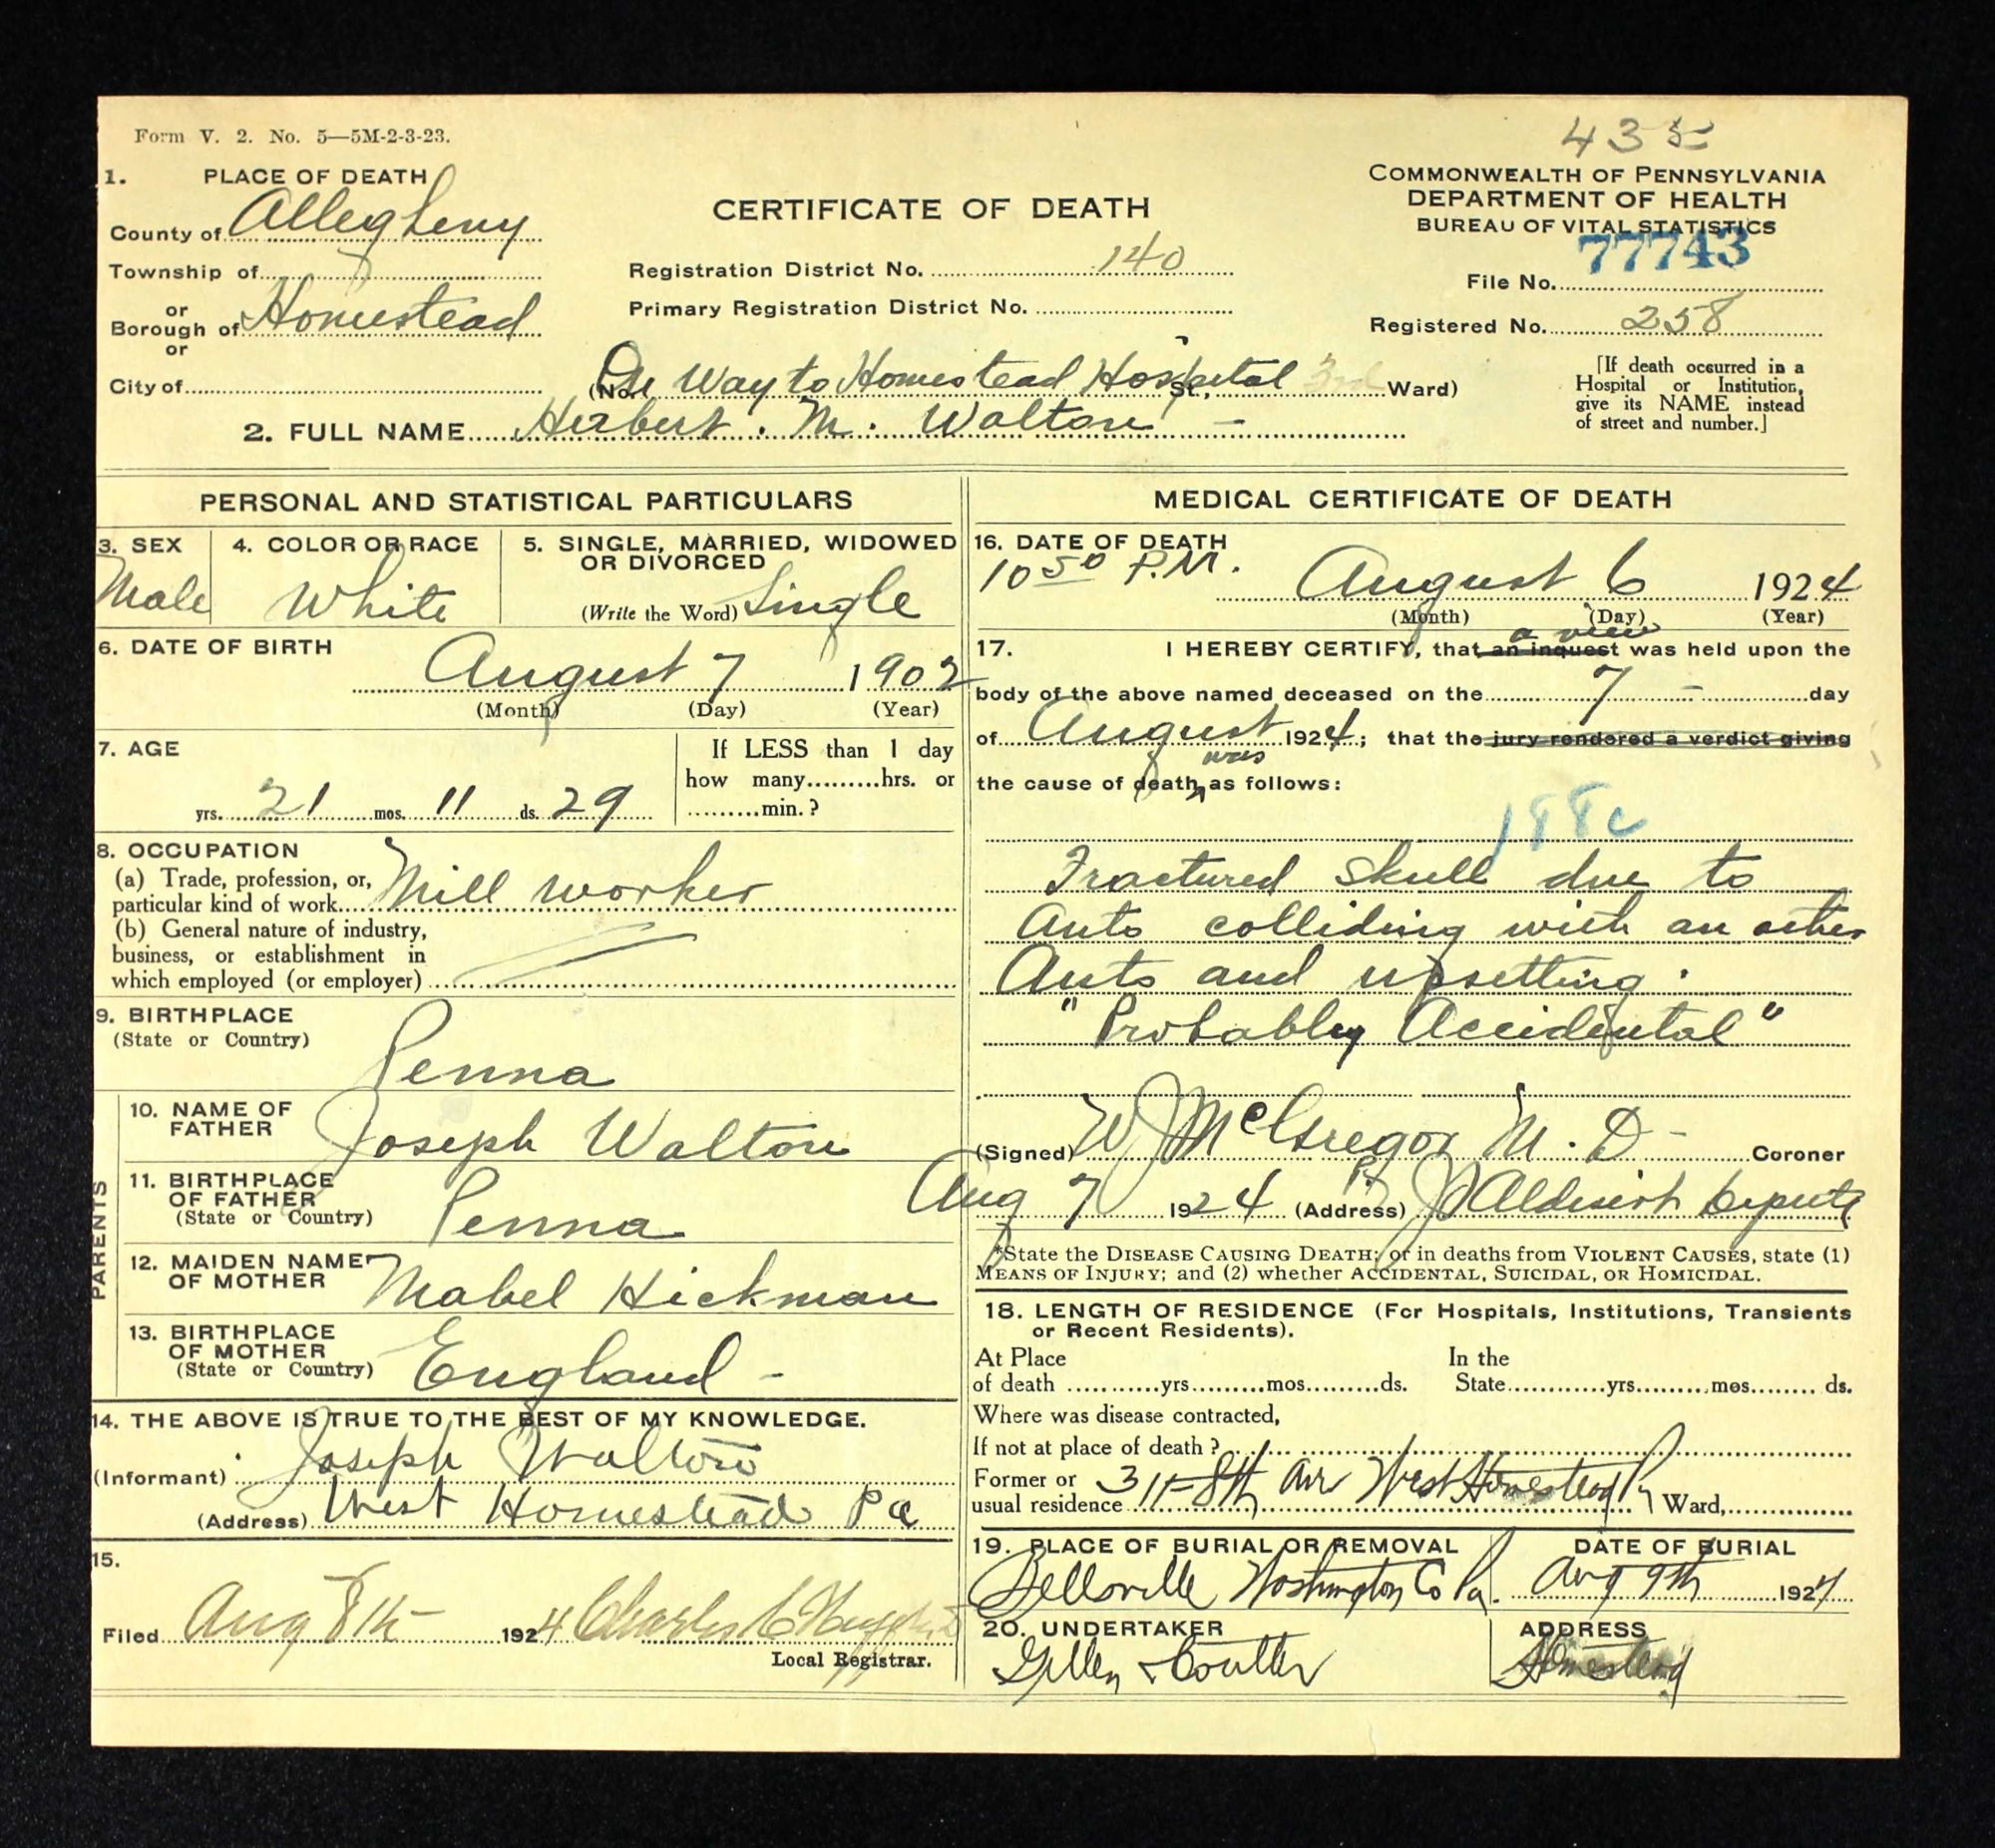 Form V. 2. No. 5—5M-2-3-23.
435
1. PLACE OF DEATH
County of Allegheny
Township of
or
Borough of Homestead
or
City of
CERTIFICATE OF DEATH
Registration District No. 140
Primary Registration District No.
COMMONWEALTH OF PENNSYLVANIA
DEPARTMENT OF HEALTH
BUREAU OF VITAL STATISTICS
77743
File No.
Registered No. 258
(No. On Way to Homestead Hospital St., 3rd Ward)
[If death occurred in a
Hospital or Institution,
give its NAME instead
of street and number.]
2. FULL NAME Herbert. M. Walton
PERSONAL AND STATISTICAL PARTICULARS
3. SEX
Male
4. COLOR OR RACE
White
5. SINGLE, MARRIED, WIDOWED
OR DIVORCED
(Write the Word) Single
6. DATE OF BIRTH
August 7 1902
(Month) (Day) (Year)
7. AGE
yrs. 21 mos. 11 ds. 29
If LESS than 1 day
how many hrs. or
min.?
8. OCCUPATION
(a) Trade, profession, or,
particular kind of work Mill worker
(b) General nature of industry,
business, or establishment in
which employed (or employer)
9. BIRTHPLACE
(State or Country)
Penna
PARENTS
10. NAME OF
FATHER
Joseph Walton
11. BIRTHPLACE
OF FATHER
(State or Country)
Penna
12. MAIDEN NAME
OF MOTHER
Mabel Hickman
13. BIRTHPLACE
OF MOTHER
(State or Country)
England -
14. THE ABOVE IS TRUE TO THE BEST OF MY KNOWLEDGE.
(Informant) Joseph Walton
(Address) West Homestead Pa
15.
Filed Aug 8th 1924 Charles
Local Registrar.
MEDICAL CERTIFICATE OF DEATH
16. DATE OF DEATH
10 50 P.M. August 6 1924
(Month) (Day) (Year)
a view
17. I HEREBY CERTIFY, that an inquest was held upon the
body of the above named deceased on the 7 - day
of August 1924; that the jury rendered a verdict giving
was
the cause of death as follows:
188c
Fractured Skull due to
Auto colliding with an other
Auto and upsetting.
"Probably Accidental"
(Signed) W J McGregor M. D - Coroner
Aug 7 1924 (Address) Deputy
*State the DISEASE CAUSING DEATH; or in deaths from VIOLENT CAUSES, state (1)
MEANS OF INJURY; and (2) whether ACCIDENTAL, SUICIDAL, OR HOMICIDAL.
18. LENGTH OF RESIDENCE (For Hospitals, Institutions, Transients
or Recent Residents).
At Place In the
of death yrs. mos. ds. State yrs. mos. ds.
Where was disease contracted,
If not at place of death?
Former or
usual residence 311-8th Ave West Homestead Pa Ward,
19. PLACE OF BURIAL OR REMOVAL
Washington Co Pa.
DATE OF BURIAL
Aug 9th 1924
20. UNDERTAKER
Gillen & Coulter
ADDRESS
Homestead